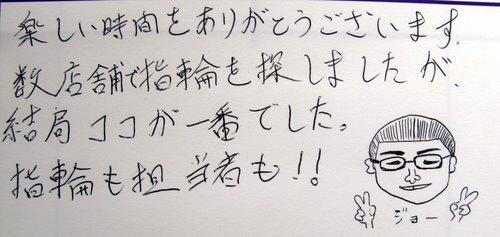 楽しい時間をありがとうございます.
数店舗で指輪を探しましたが.
結局ココが一番でした。
指輪も担当者も!!
ジョー